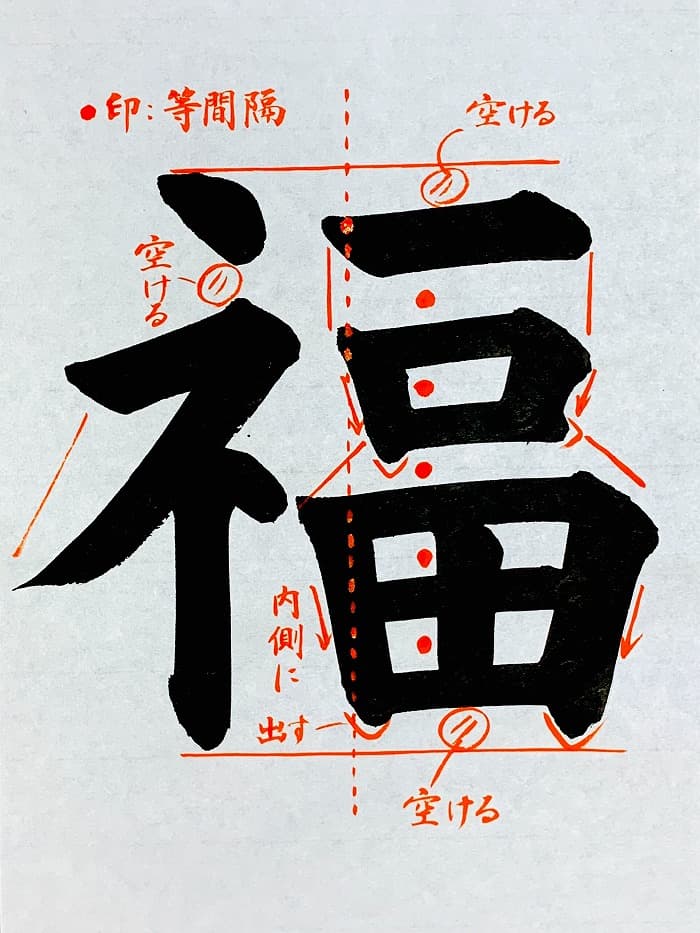 ●印:等間隔
空ける
空ける
福
内側に
出す
空ける